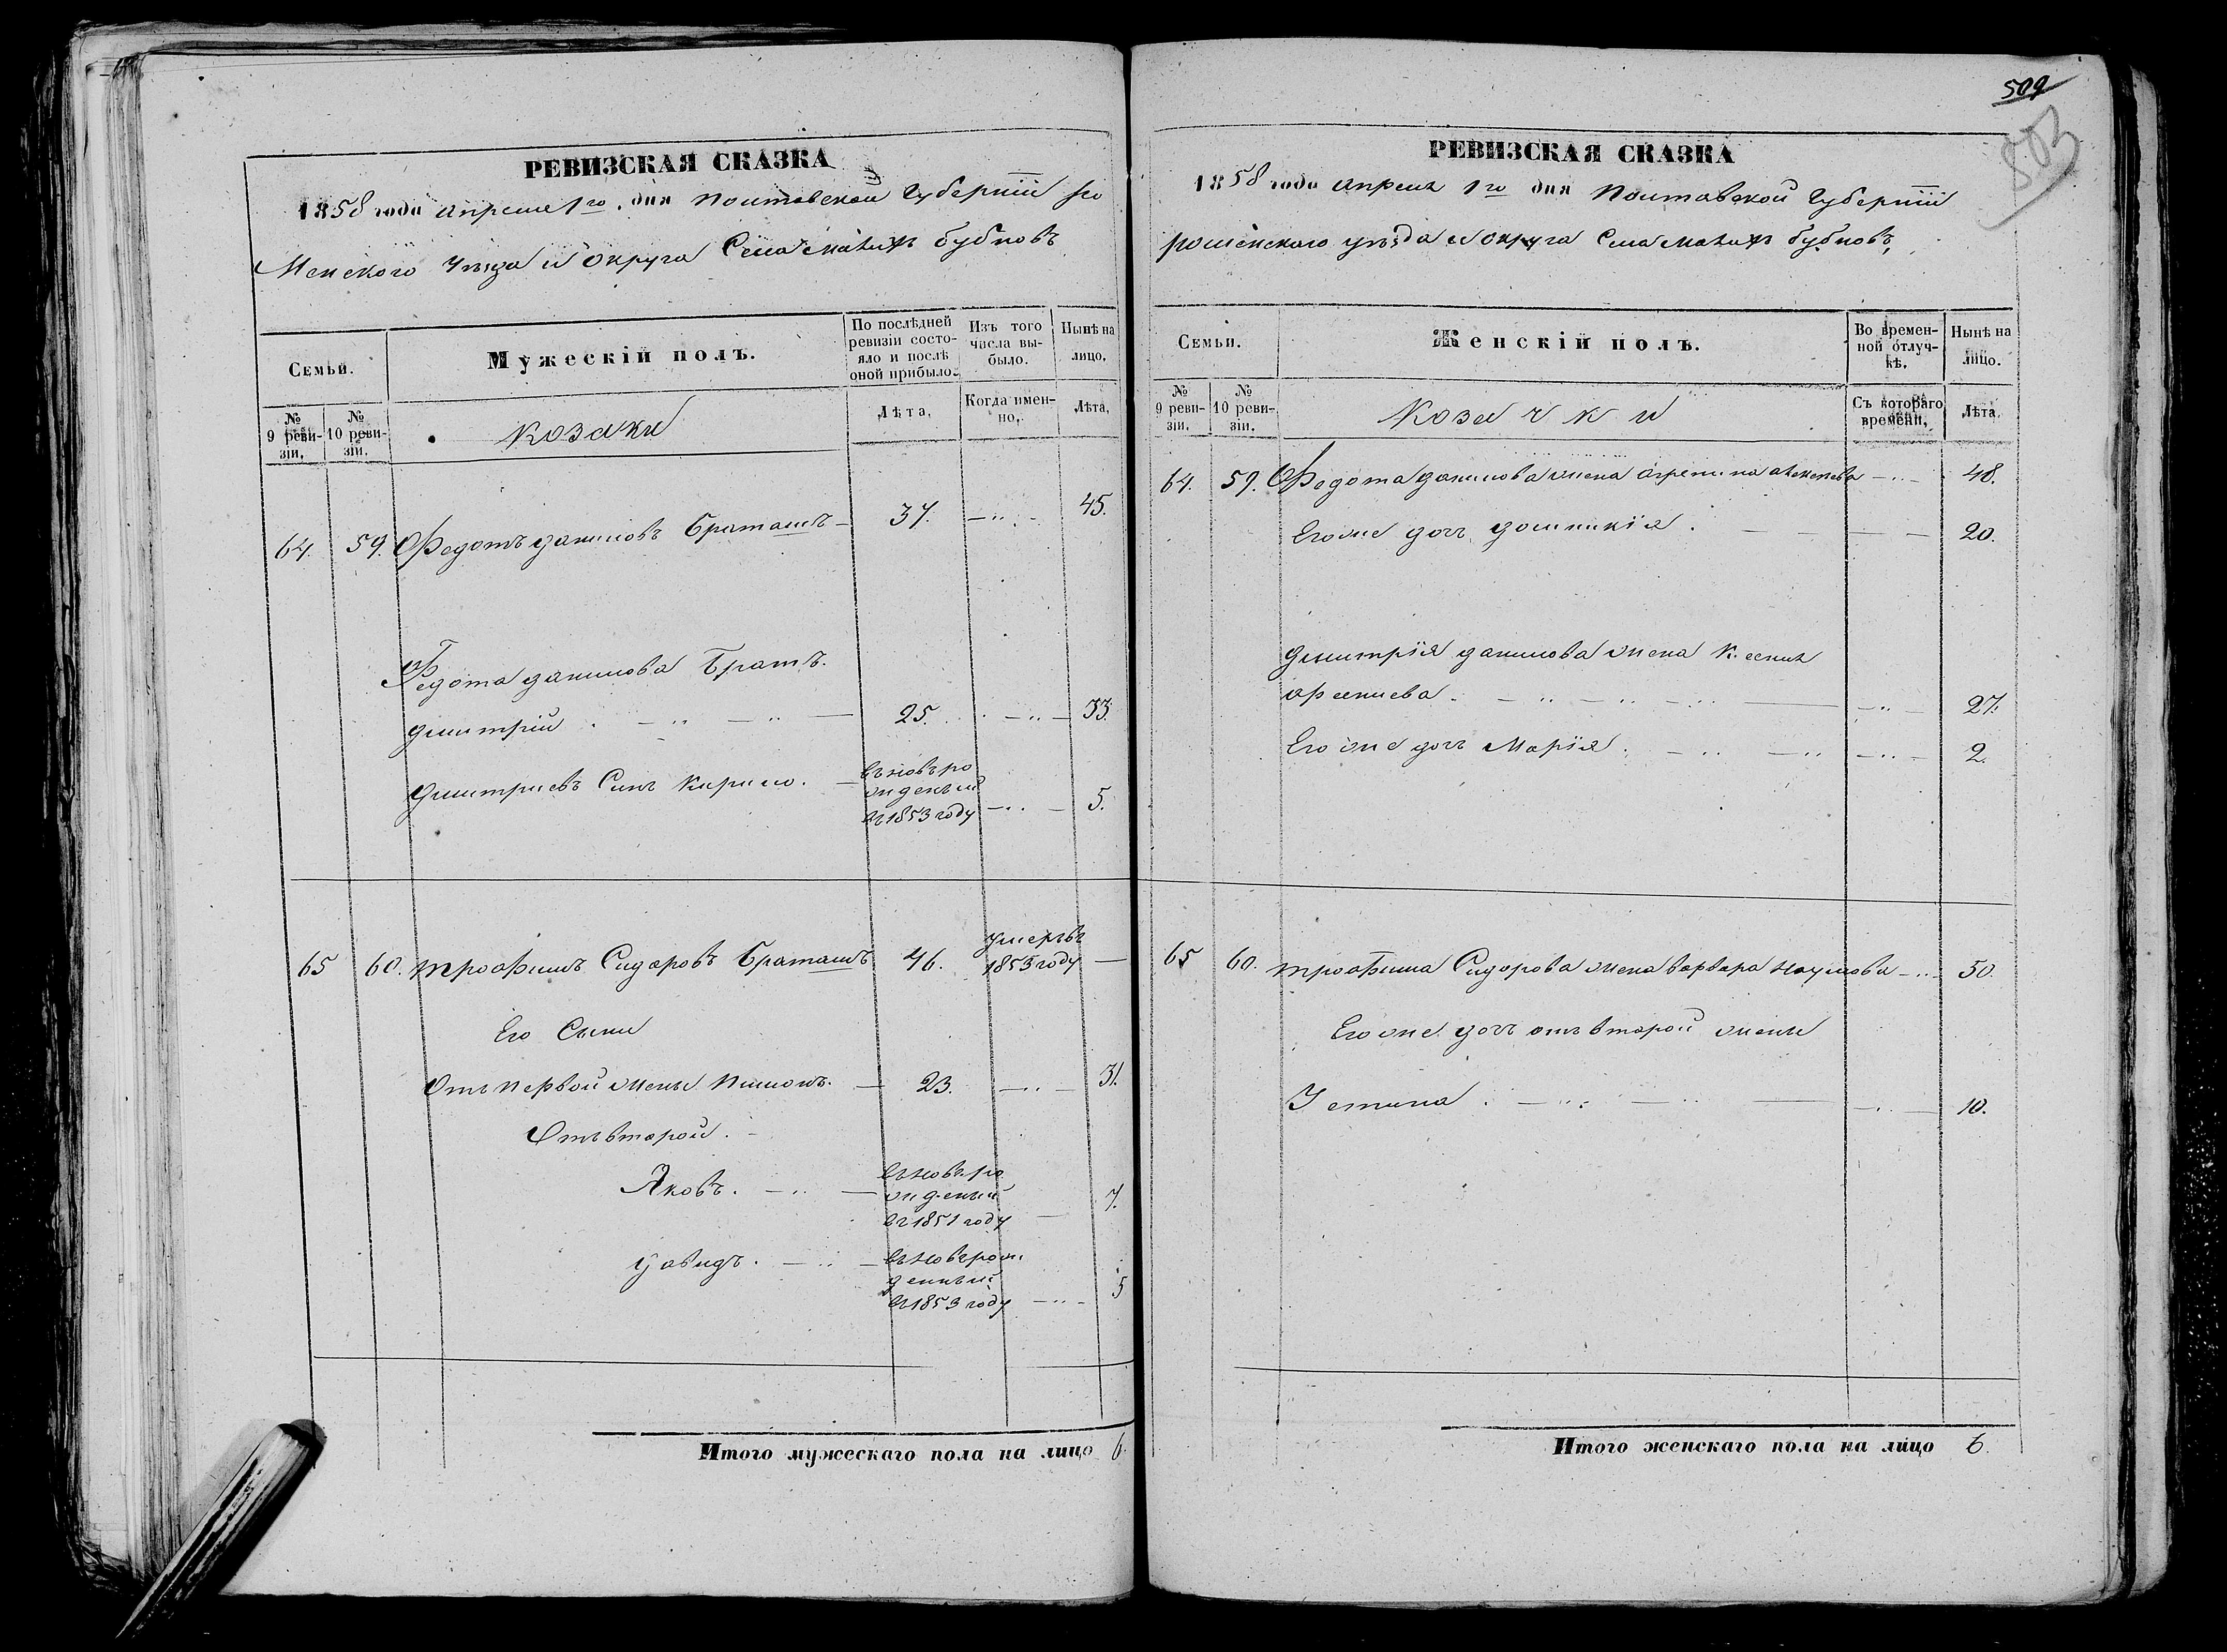 РЕВИЗСКАЯ СКАЗКА
1858 года апреля 1го дня Полтавской Губернiи Ро
Менского уезда и округа Села малихъ бубновъ
Семьи.
Мужескiй полъ.
По послѣдней ревизiи состо-
яло и послѣ
оной прибыло.
Изъ того
числа вы-
было.
Нынѣ на
лицо.
№
9 реви-
зiи.
№
10 реви-
зiи.
Козаки
Лѣта.
Когда имен-
но.
Лѣта.
64. 59. Федотъ даниловъ Браташъ – 37. – 45.
Федота данилова Братъ
дмитрiй 25. 33.
дмитриевъ Синъ Кирило. въновъро
жденый
въ 1853 году 5.
65 60. трофимъ Сидоровъ Браташъ 46. умеръ въ
1853 году –
Его Сыни
Отъ первой жены Пимонъ. – 23. 31.
Отъ второй. –
Яковъ. въновъро
жденый
въ 1851 году 7.
давидъ. въновърож
денный
въ 1853 году 5
Итого мужескаго пола на лицо 6.
509
503
РЕВИЗСКАЯ СКАЗКА
1858 года апреля 1го дня Полтавской Губернiи
роменского уезда и округа Села малихъ бубновъ,
Семьи.
Женскiй полъ.
Во времен-
ной отлуч-
кѣ.
Нынѣ на
лицо.
№
9 реви-
зiи.
№
10 реви-
зiи.
Козачки
Съ котораго
времени.
Лѣта.
64. 59. Федота данилова жена агрепина 48.
Его же дочъ домникiя. 20.
дмитрiя данилова жена Ксения
арсениева. 27.
Его же дочъ Марiя. 2.
65 60. трофима Сидорова жена варвара наумова 50.
Его же дочъ отъ второй жены
Устина. 10.
Итого женскаго пола на лицо 6.